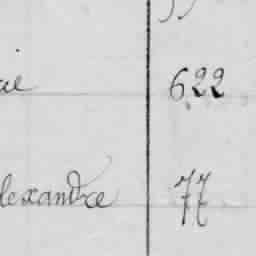 622
lexandre 77